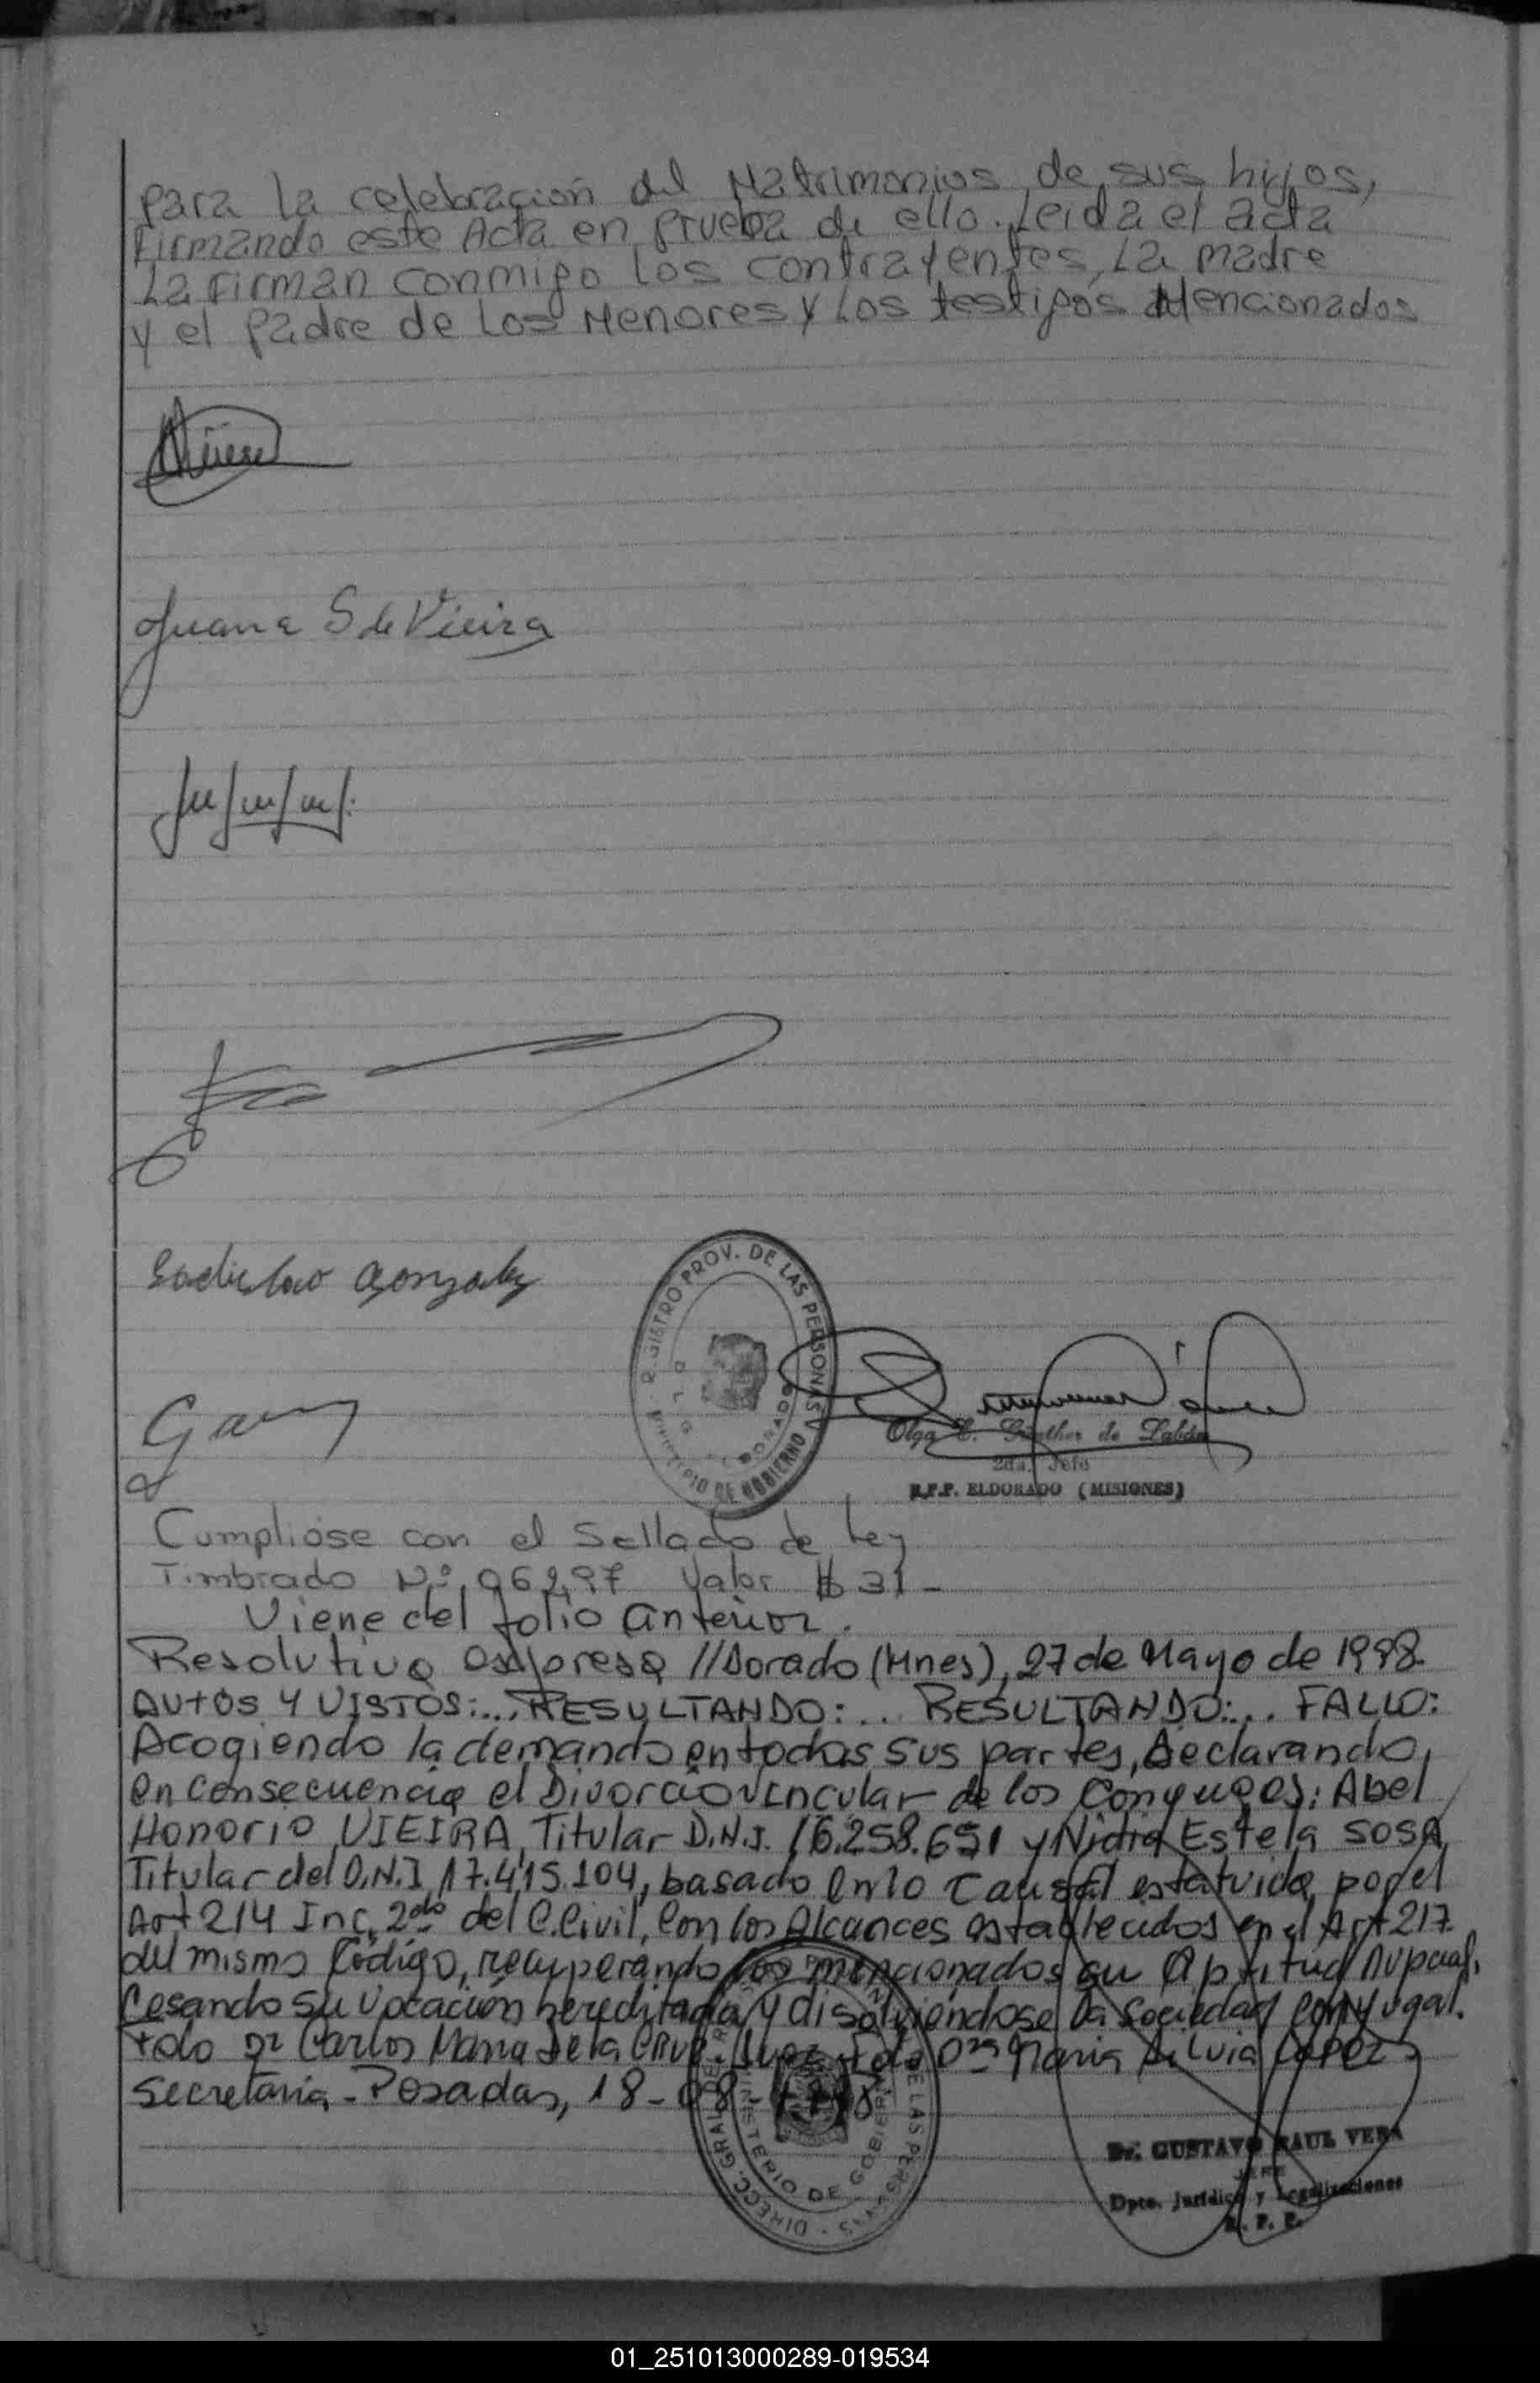 para la celebración del Matrimonios de sus hijos,
Firmando este Acta en prueba de ello. Leida el acta
La Firman conmigo los contrayentes, La madre
y el padre de Los Menores y Los testigos Mencionados
Juana S de Vieira
Ladislao Gonzalez
REGISTRO PROV. DE LAS PERSONAS
MINISTERIO DE GOBIERNO
Olga E. Günther de Labán
2da. Jefe
R.P.P. ELDORADO (MISIONES)
Cumplióse con el Sellado de Ley
Timbrado Nº 96297 Valor $ 31-
Viene del folio anterior.
Resolutiva expresa //Dorado (Mnes), 27 de Mayo de 1998.
AUTOS Y VISTOS:... RESULTANDO:... RESULTANDO:... FALLO:
Acogiendo la demanda en todas sus partes, Declarando,
en consecuencia el Divorcio Vincular de los Conyuges: Abel
Honorio VIEIRA, Titular D.N.I. 16.258.651 y Nidia Estela SOSA
Titular del D.N.I 17.415.104, basado en la Causal estatuida por el
Art 214 Inc, 2do del C.Civil, Con los Alcances establecidos en el Art 217
del mismo Código, recuperando los mencionados su Aptitud Nupcial,
Cesando su vocación hereditaria y disolviéndose la Sociedad Conyugal.
Fdo Dr Carlos Maria De la Cruz. Juez. Fdo Dra Maria Silvia López
Secretaria - Posadas, 18-08-
DIRECC. GRAL. DEL DE LAS PERSONAS
MINISTERIO DE GOBIERNO
Dr. GUSTAVO RAUL VERA
JEFE
Dpto. Jurídico y Legalizaciones
R. P. P.
01_251013000289-019534